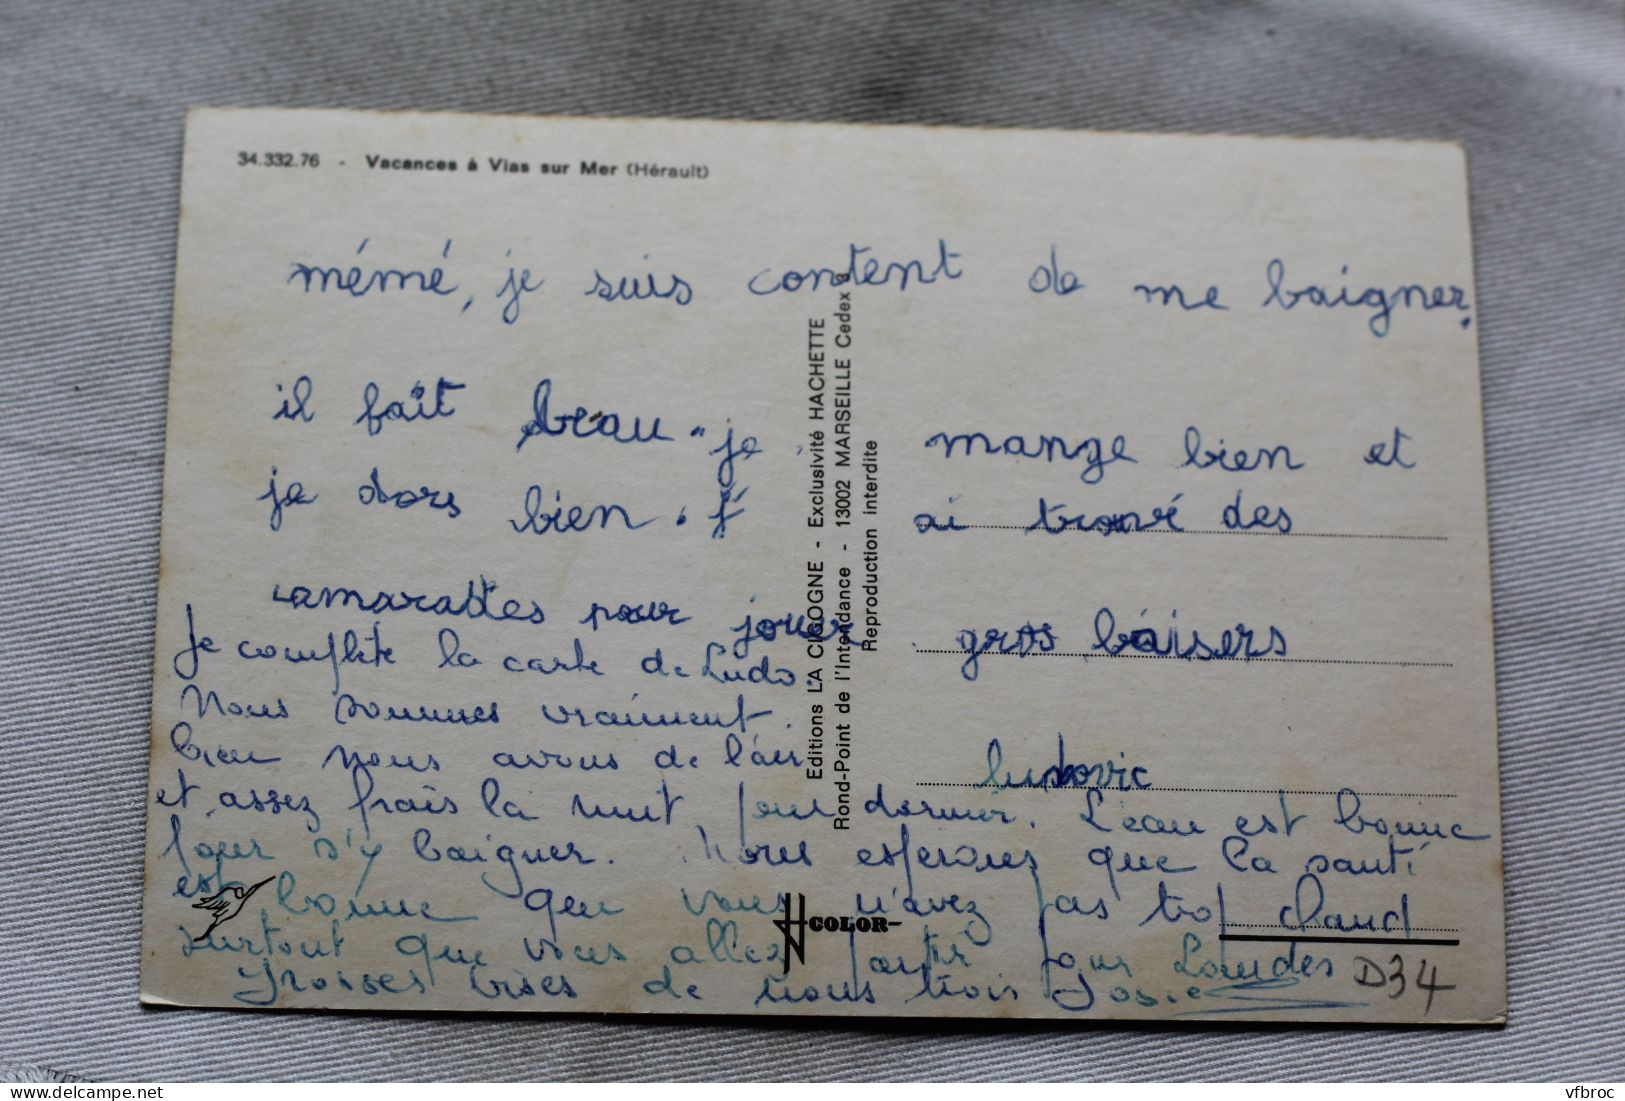 34.332.76 - Vacances à Vias sur Mer (Hérault)
mémé, je suis content de me baigner.
il fait beau. je mange bien et
je dors bien. j'ai trouvé des
camarattes pour jouer gros baisers
ludovic
Je complète la carte de Ludo.
Nous sommes vraiment
bien nous avons de l'air
et assez frais la nuit pour dormir. L'eau est bonne
pour s'y baigner. Nous esperons que la santé
est bonne que vous n'avez pas trop chaud
surtout que vous allez partir pour Lourdes
Grosses bises de nous trois Josie
Editions LA CIGOGNE - Exclusivité HACHETTE
Rond-Point de l'Intendance - 13002 MARSEILLE Cedex 3
Reproduction interdite
COLOR
D34
vfbroc